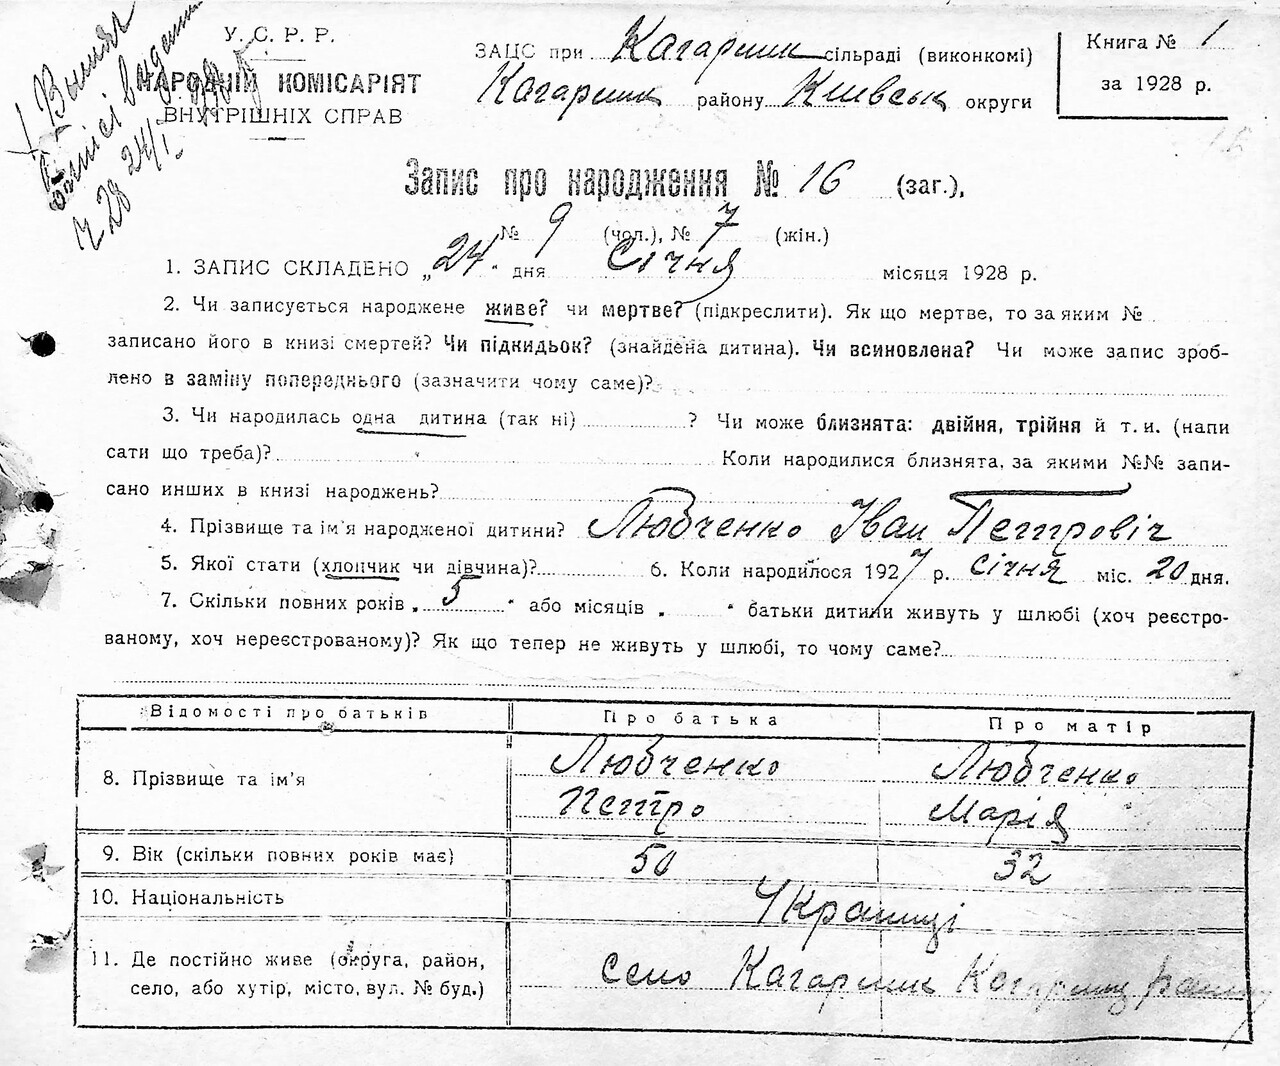 У. С. Р. Р.
НАРОДНІЙ КОМІСАРІЯТ
ВНУТРІШНІХ СПРАВ
ЗАЦС при Кагарлик сільраді (виконкомі)
Кагарлик району Київськ округи
Книга № 1
за 1928 р.
28 24/I
Запис про народження № 16 (заг.),
№ 9 (чол.), № 7 (жін.)
1. ЗАПИС СКЛАДЕНО „24" дня Січня місяця 1928 р.
2. Чи записується народжене живе? чи мертве? (підкреслити). Як що мертве, то за яким №
записано його в книзі смертей? Чи підкидьок? (знайдена дитина). Чи всиновлена? Чи може запис зроб-
лено в заміну попереднього (зазначити чому саме)?
3. Чи народилась одна дитина (так ні) ? Чи може близнята: двійня, трійня й т. и. (напи
сати що треба)? Коли народилися близнята, за якими №№ запи-
сано инших в книзі народжень?
4. Прізвище та ім'я народженої дитини? Любченко Іван Петровіч
5. Якої стати (хлопчик чи дівчина)? 6. Коли народилося 1927 р. січня міс. 20 дня.
7. Скільки повних років „5" або місяців „ " батьки дитини живуть у шлюбі (хоч реєстро-
ваному, хоч нереєстрованому)? Як що тепер не живуть у шлюбі, то чому саме?
Відомості про батьків Про батька Про матір
8. Прізвище та ім'я Любченко Петро Любченко Марія
9. Вік (скільки повних років має) 50 32
10. Національність Українці
11. Де постійно живе (округа, район,
село, або хутір, місто, вул. № буд.) село Кагарлик Кагарлиц району